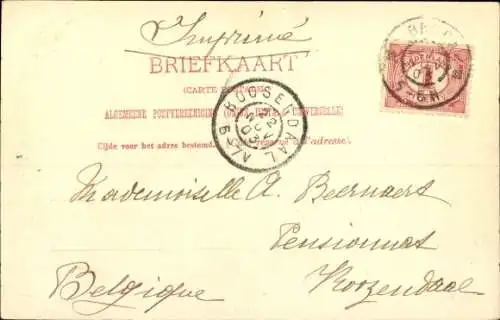 Imprimé
BRIEFKAART
(CARTE POSTALE)
ALGEMEENE POSTVEREENIGING (UNION POSTALE UNIVERSELLE)
Zijde voor het adres bestemd. (Côté réservé à l'adresse).
ROOSENDAAL
NOV
03
Mademoiselle A. Beernaert
Pensionnat
Roozendaal
Belgique